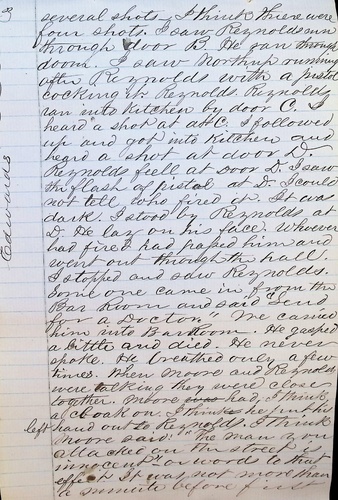 3
several shots, I think there were
four shots. I saw Reynolds run
through door B. He ran through
doom. I saw Northup running
after Reynolds with a pistol
cocking it. Reynolds. Reynolds
ran into Kitchen by door C. I
heard a shot at at C. I followed
up and got into Kitchen and
heard a shot at door D.
Reynolds feell at Door D. I saw
the flash of pistol at D. I could
not tell who fired it. It was
dark. I stood by Reynolds at
D. He lay on his face. Whoever
had fired had passed him and
went out through the hall.
I stopped and saw Reynolds.
Some one came in from the
Bar Room and said "Send
for a Doctor." We carried
him into Barroom. He gasped
a little and died. He never
spoke. He breathed only a few
times. When Moore and Reynolds
were talking they were close
together. Moore was had, I think,
a cloak on. I think he put his
left hand out to Reynolds. I think
Moore said: "The man you
attacked on the street is
innocent" or words to that
effect. It was not more than
a minute before
Edwards